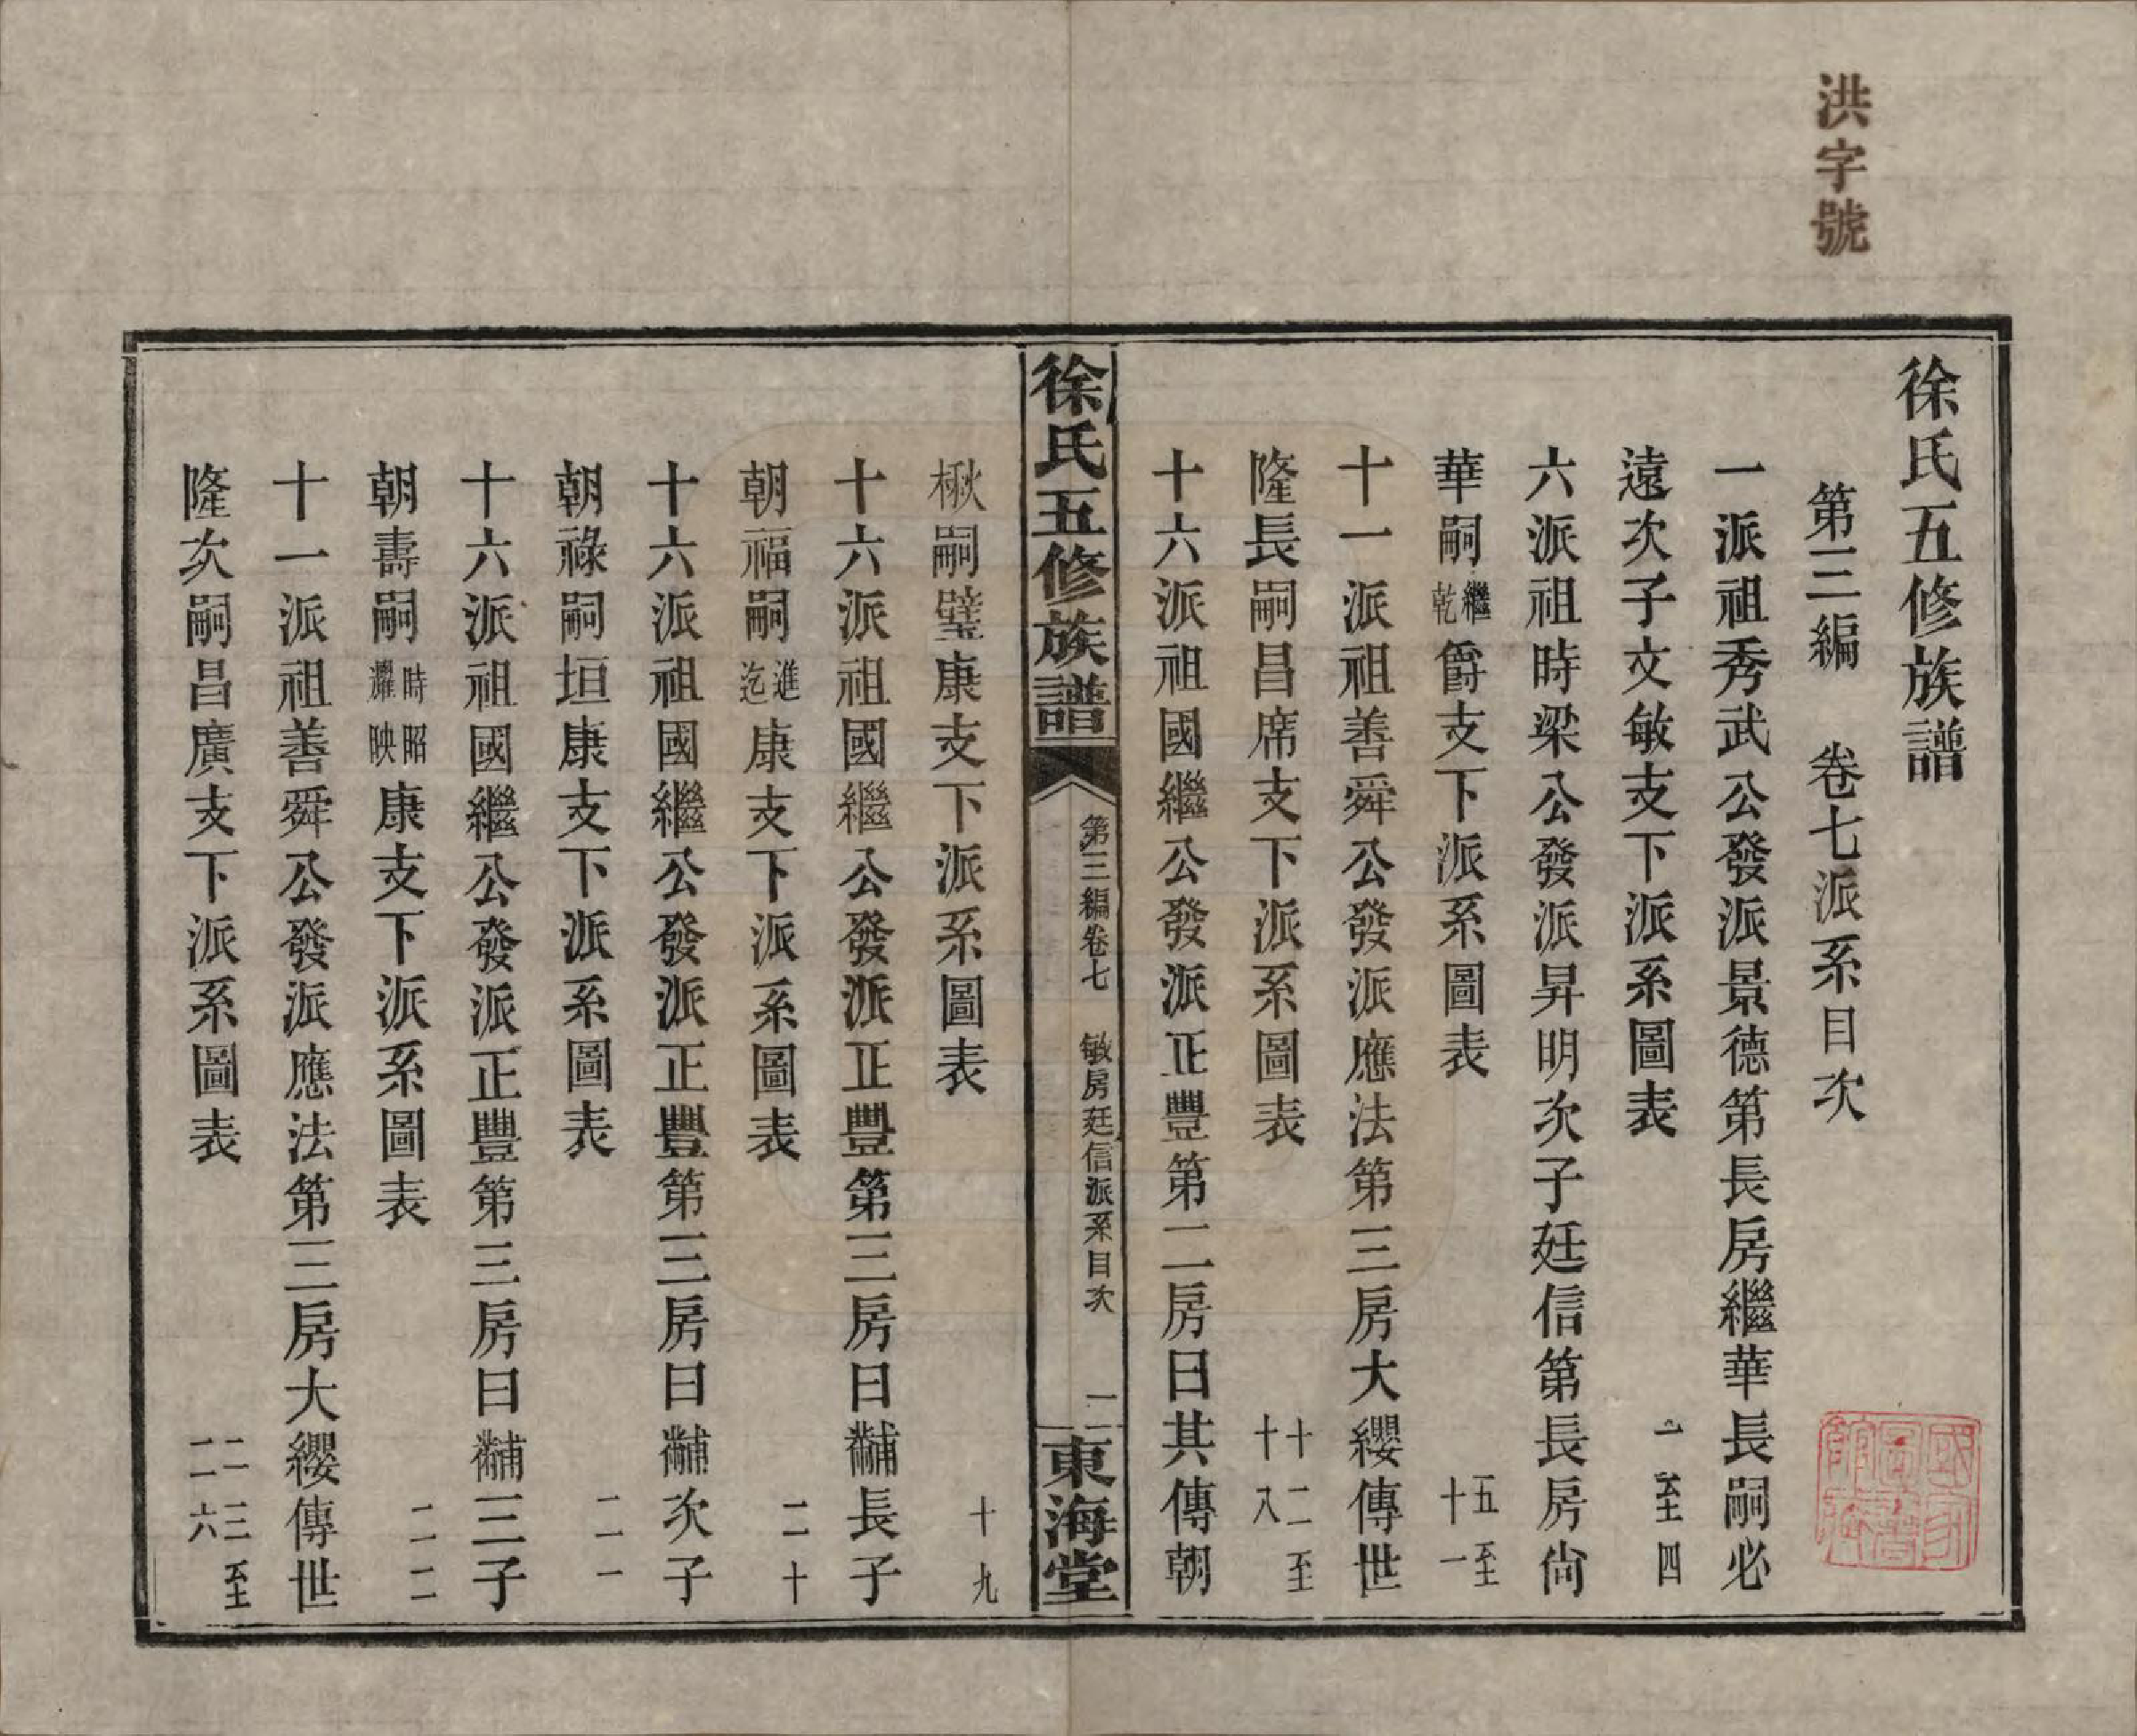 洪字號
徐氏五修族譜
第三編　卷七派系目次
一派祖秀武公發派景德第長房繼華長嗣必
遠次子文敏支下派系圖表　一至四
六派祖時梁公發派昇明次子廷信第長房尙
華嗣繼乾爵支下派系圖表　五至十一
十一派祖善舜公發派應法第三房大纓傳世
隆長嗣昌席支下派系圖表　十二至十八
十六派祖國繼公發派正豐第二房曰其傳朝
徐氏五修族譜　第三編卷七　敏房廷信派系目次　一　東海堂
楸嗣璧康支下派系圖表　十九
十六派祖國繼公發派正豐第三房曰黼長子
朝福嗣進迄康支下派系圖表　二十
十六派祖國繼公發派正豐第三房曰黼次子
朝祿嗣垣康支下派系圖表　二一
十六派祖國繼公發派正豐第三房曰黼三子
朝壽嗣時昭耀映康支下派系圖表　二二
十一派祖善舜公發派應法第三房大纓傳世
隆次嗣昌廣支下派系圖表　二三至二六